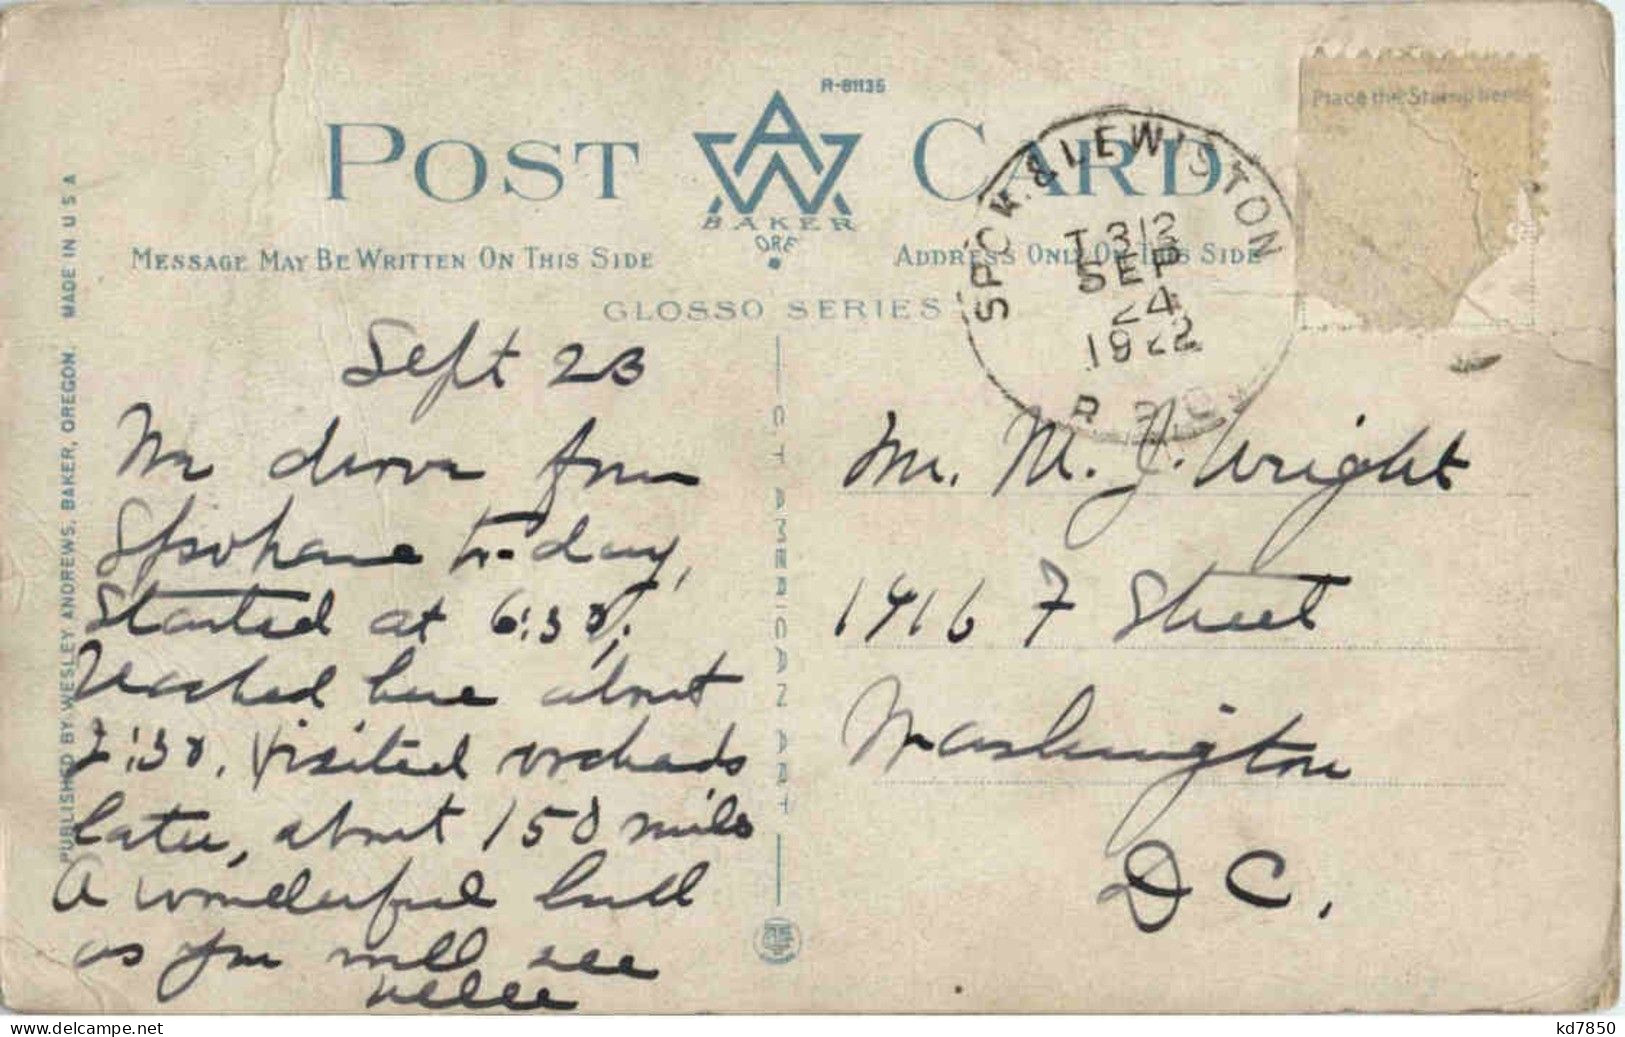 R-81135
POST CARD
AW
BAKER
ORE
MESSAGE MAY BE WRITTEN ON THIS SIDE
ADDRESS ONLY ON THIS SIDE
GLOSSO SERIES
Place the Stamp here
SPOK. & LEWISTON
T 313
SEP
24
1922
R.P.O.
PUBLISHED BY WESLEY ANDREWS, BAKER, OREGON. MADE IN U S A
C T AMERICAN ART
Sept 23
We drove from
Spokane to-day,
started at 6:30,
Reached here about
2:30. Visited orchads
later, about 150 miles
A wonderful
as you will see
Mr. M. J. Wright
1916 F Street
Washington
D C.
kd7850